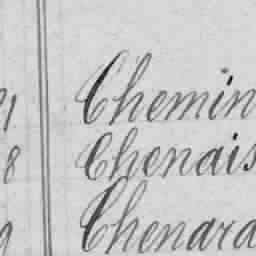 1 Chemin
8 Chenais
9 Chenard